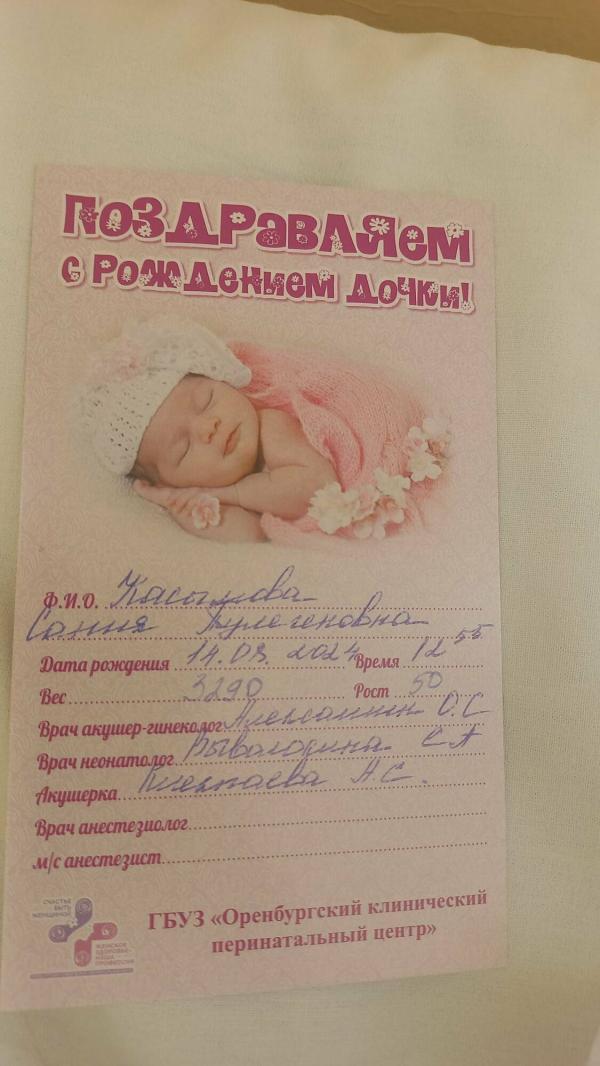 Поздравляем
с рождением дочки!
Ф.И.О. Касымова
Сания Тулегеновна
Дата рождения 14.08.2024 Время 12 55
Вес 3290 Рост 50
Врач акушер-гинеколог О.С
Врач неонатолог С А
Акушерка А С.
Врач анестезиолог
м/с анестезист
СЧАСТЬЕ
БЫТЬ
ЖЕНЩИНОЙ
ЖЕНСКОЕ
ЗДОРОВЬЕ-
НАША
ПРОФЕССИЯ
ГБУЗ «Оренбургский клинический
перинатальный центр»